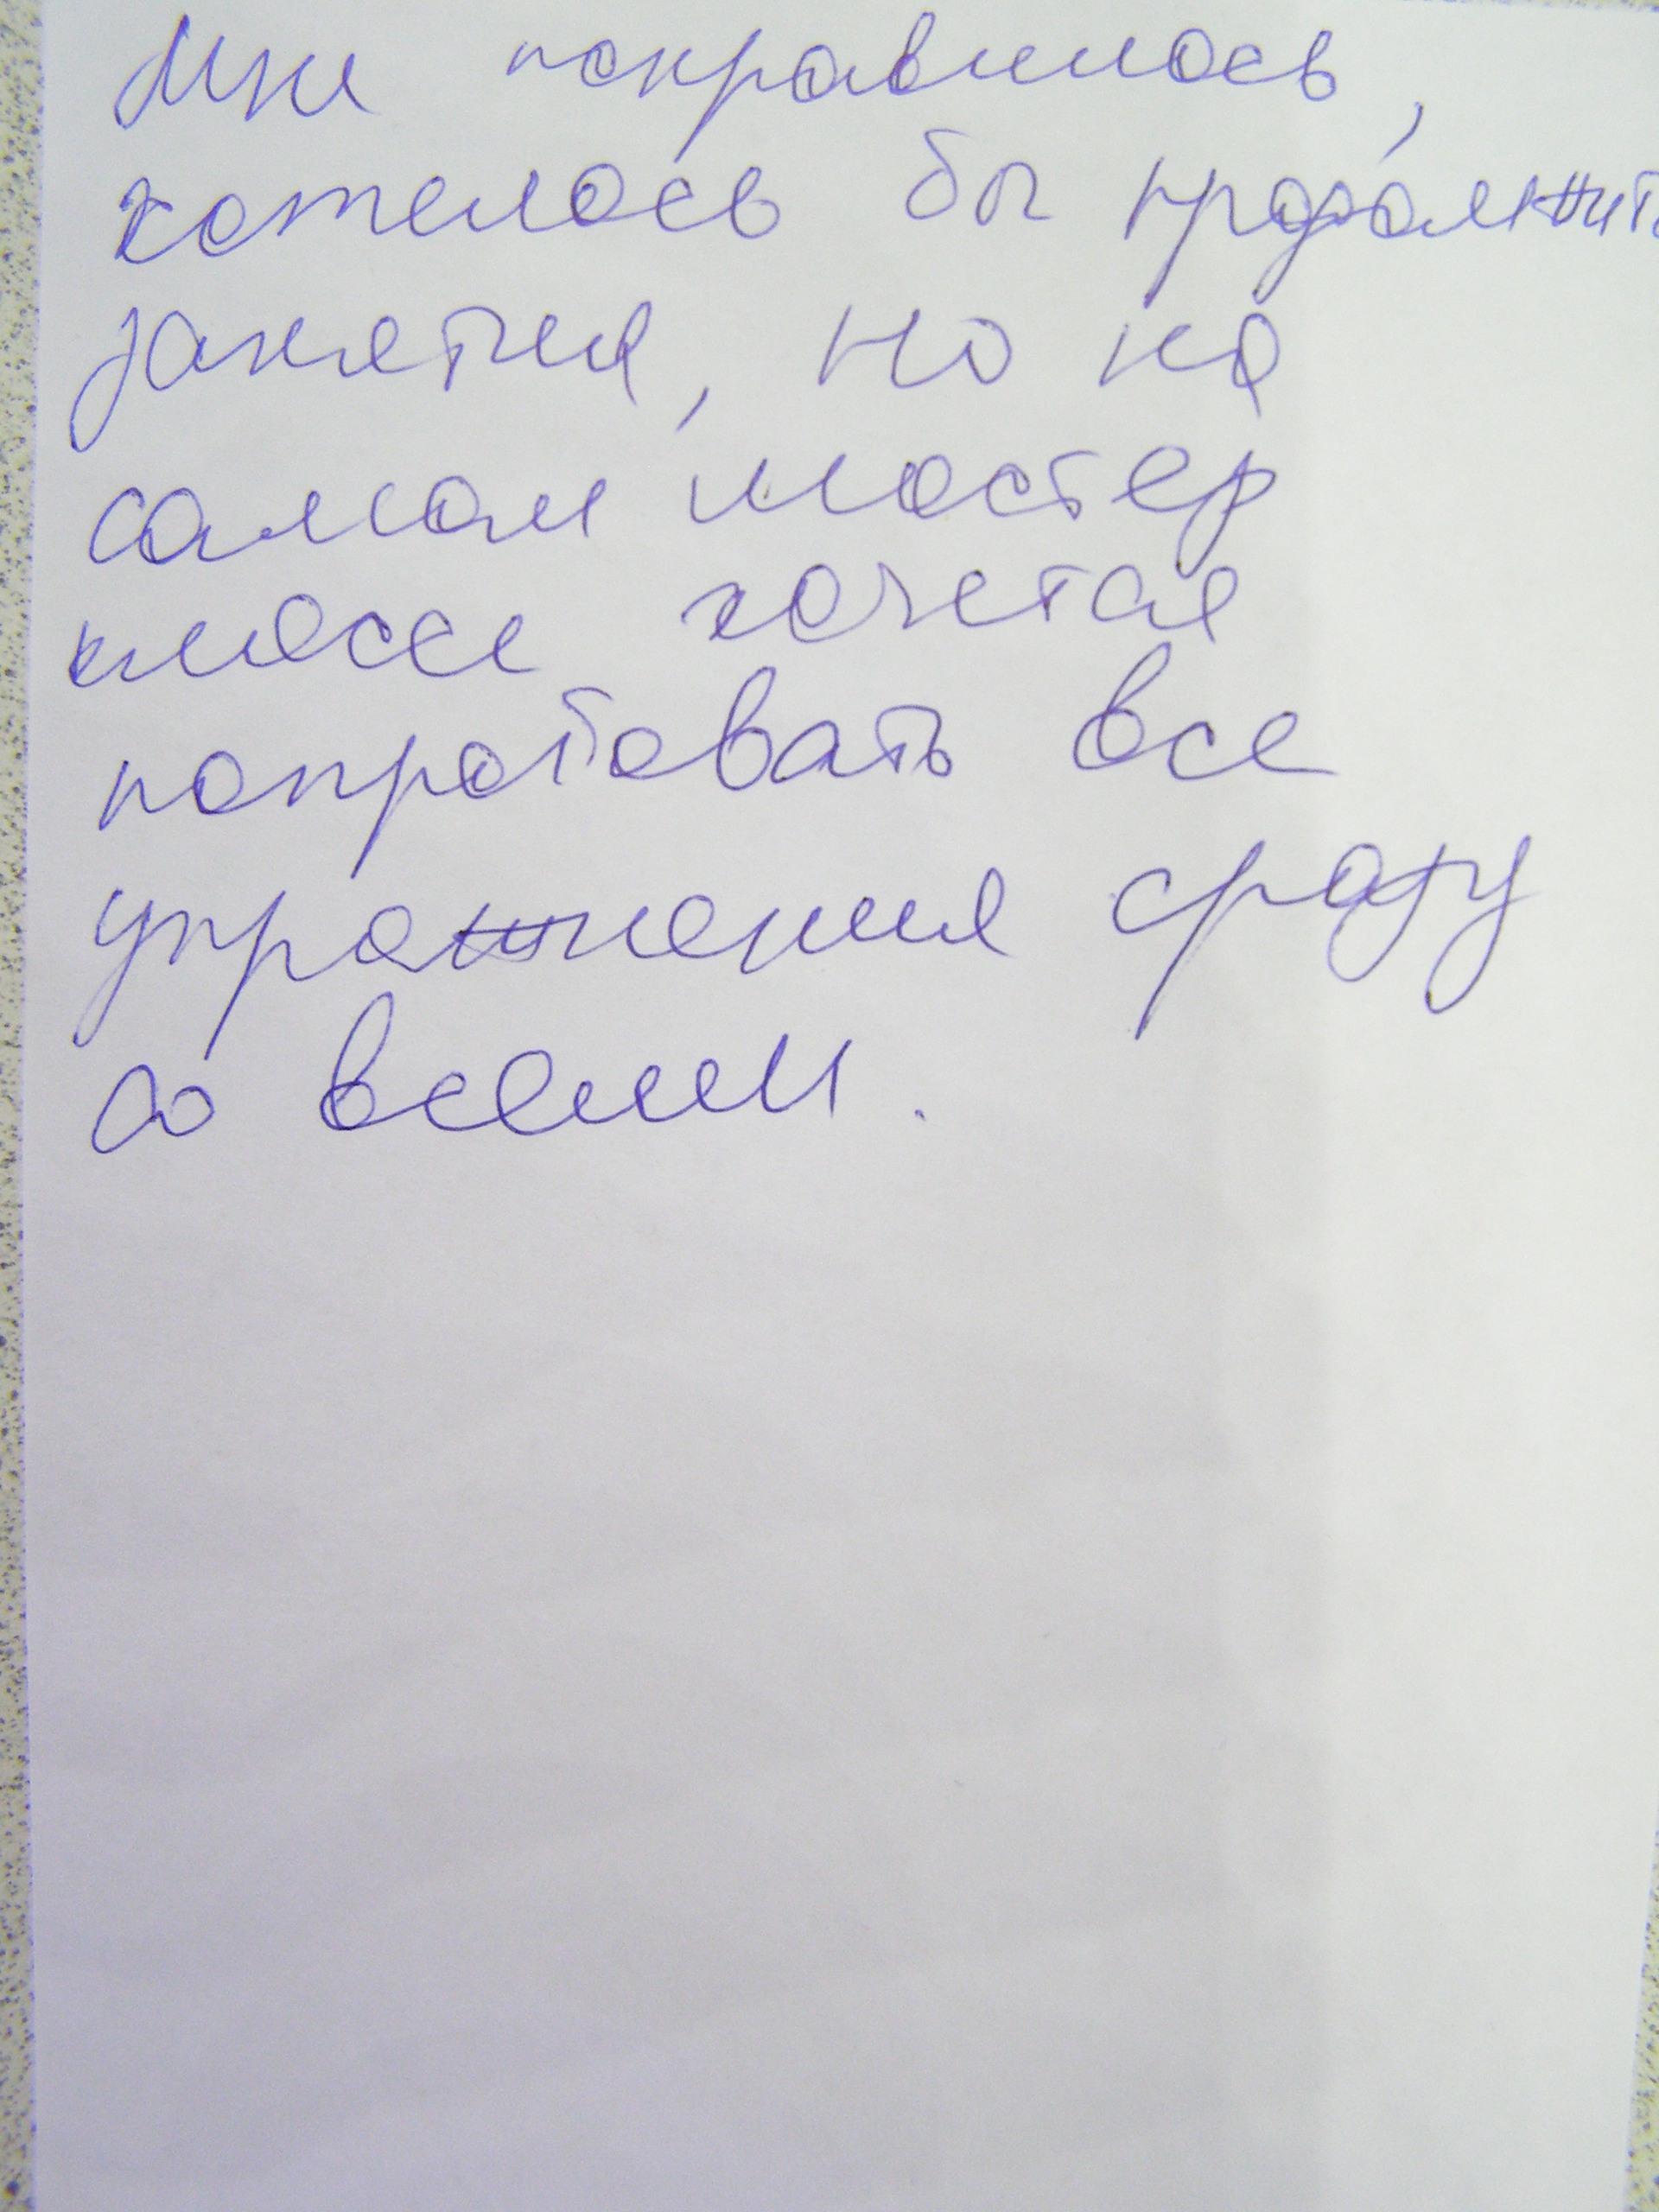 Мне понравилось,
хотелось бы продолжить
занятия, но на
самом мастер
классе хочется
попробовать все
упражнения сразу
со всеми.